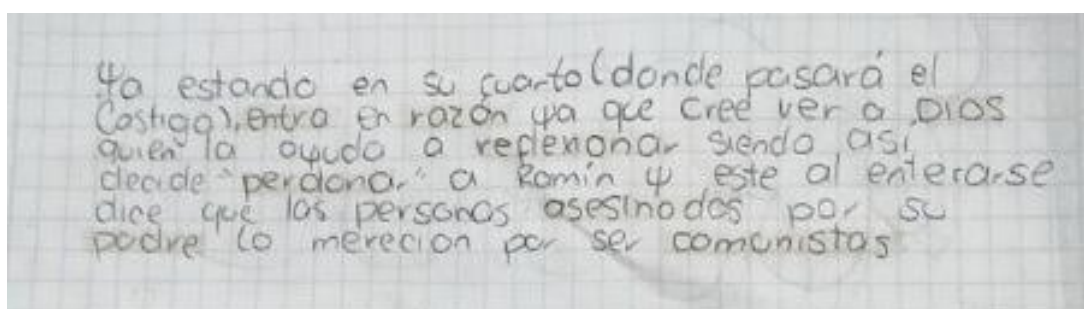 Ya estando en su cuarto (donde pasará el
Castigo), entra en razón ya que cree ver a DIOS
quien la ayuda a reflexionar siendo así,
decide "perdonar" a Romín y este al enterarse
dice que las personas asesinadas por su
padre lo merecían por ser comunistas